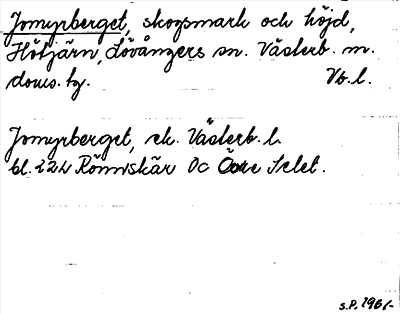 Jomyrberget, skogsmark och höjd,
Hötjärn, Lövångers sn. Västerb. m.
doms. tg. Vb. l.
Jomyrberget, ek. Västerb. l.
bl. 222 Rönnskär Dc Övre Selet.
S.P. 1961